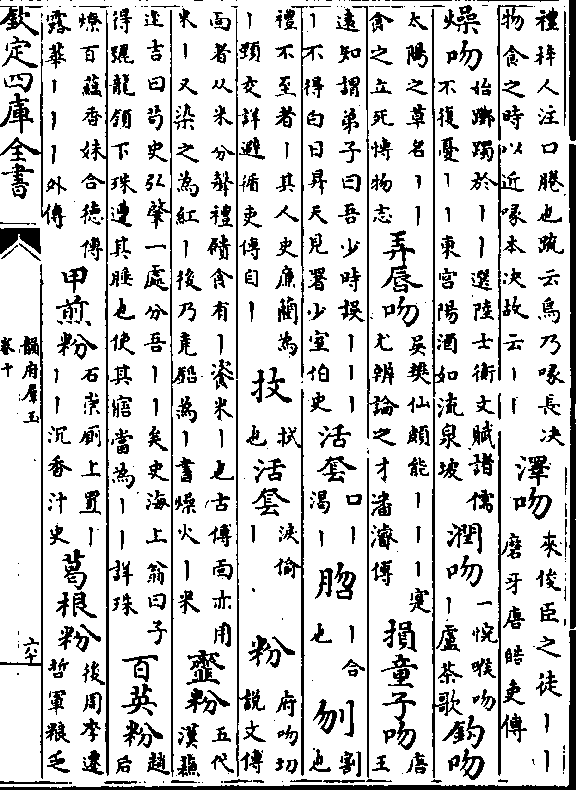 禮梓人注口腃也疏云鳥乃喙長决
物食之時以近喙本决故云丨丨
澤吻
来俊臣之徒丨丨
磨牙唐皓吏傳
燥吻
始躑躅於丨丨選陸士衡文賦諸儒
不復憂丨丨東宫陽酒如流泉坡
潤吻
一悅喉吻
丨盧茶歌
鈎吻
太陽之草名丨丨
食之立死博物志
弄唇吻
吳樊仙頗能丨丨丨寔
尤辨論之才潘濬傳
損童子吻
唐
王
遠知謂弟子曰吾少時誤丨丨丨
丨不得白日昇天見署少室伯史
活套
口丨
濁丨
脗
丨合
也
刎
割
也
禮不至者丨其人史廉藺為
丨頸交詳避循吏傳自丨
抆
拭
也
活套
淚偷
丨
粉
府吻切
説文傳
面者从米分聲禮饋食有丨餈米丨也古傳面亦用
米丨又染之為紅丨後乃竟鉛為丨書燥火丨米
虀粉
五代
漢蘇
逢吉曰茍史弘肇一處分吾丨丨矣史海上翁曰子
得驪龍頷下珠遭其睡也使其寤當為丨丨詳珠
百英粉
趙
后
燎百蕋香妹合德傳
露華丨丨丨外傳
甲煎粉
石崇厠上置丨
丨丨沉香汁史
葛根粉
後周李遷
哲軍粮乏
欽定四庫全書
韻府羣玉
卷十
六十